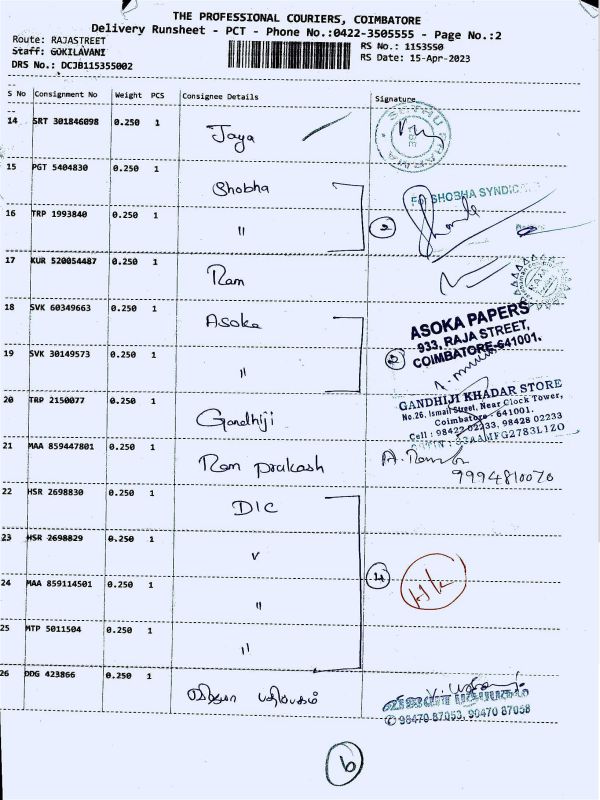 THE PROFESSIONAL COURIERS, COIMBATORE
Delivery Runsheet - PCT - Phone No.:0422-3505555 - Page No.:2
Route: RAJASTREET
RS No.: 1153550
Staff: GOKILAVANI
RS Date: 15-Apr-2023
DRS No.: DCJB115355002
S No Consignment No Weight PCS Consignee Details Signature
14 SRT 301846098 0.250 1 Jaya
15 PGT 5404830 0.250 1 Shobha
FOR SHOBHA SYNDICATE
16 TRP 1993840 0.250 1 " 2
17 KUR 520054487 0.250 1 Ram
18 SVK 60349663 0.250 1 Asoka
ASOKA PAPERS
933, RAJA STREET,
COIMBATORE-641001.
19 SVK 30149573 0.250 1 " 2
20 TRP 2150077 0.250 1 Gandhiji
GANDHIJI KHADAR STORE
No.26, Ismail Street, Near Clock Tower,
Coimbatore - 641001.
Cell : 98422 02233, 98428 02233
21 MAA 859447801 0.250 1 Ram prakash
9994810070
22 HSR 2698830 0.250 1 DIC
23 HSR 2698829 0.250 1 "
24 MAA 859114501 0.250 1 " 4
25 MTP 5011504 0.250 1 "
26 DDG 423866 0.250 1 விஜயா பதிப்பகம்
விஜயா பதிப்பகம்
90470 87058
6